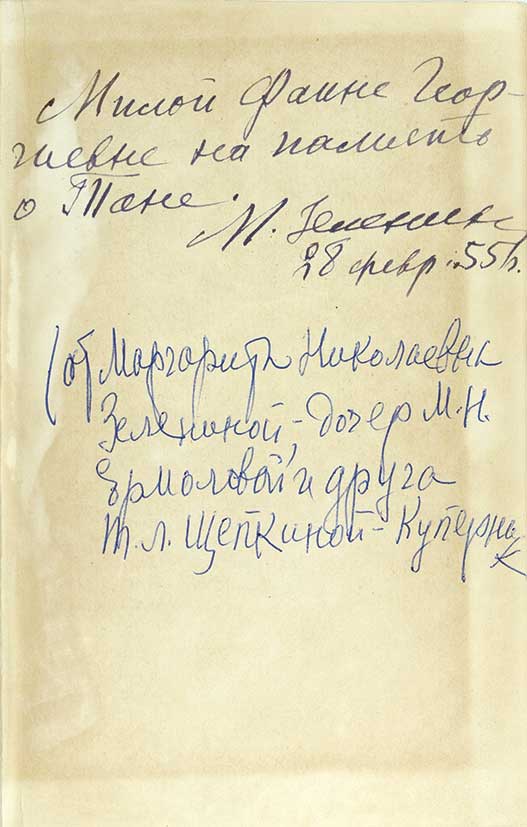 Милой Фаине Геор-
гиевне на память
о Тане.
М. Зеленина
28 февр. 55 г.
(от Маргариты Николаевны
Зелениной, - дочер М. Н.
Ермоловой и друга
Т. Л. Щепкиной - Куперник